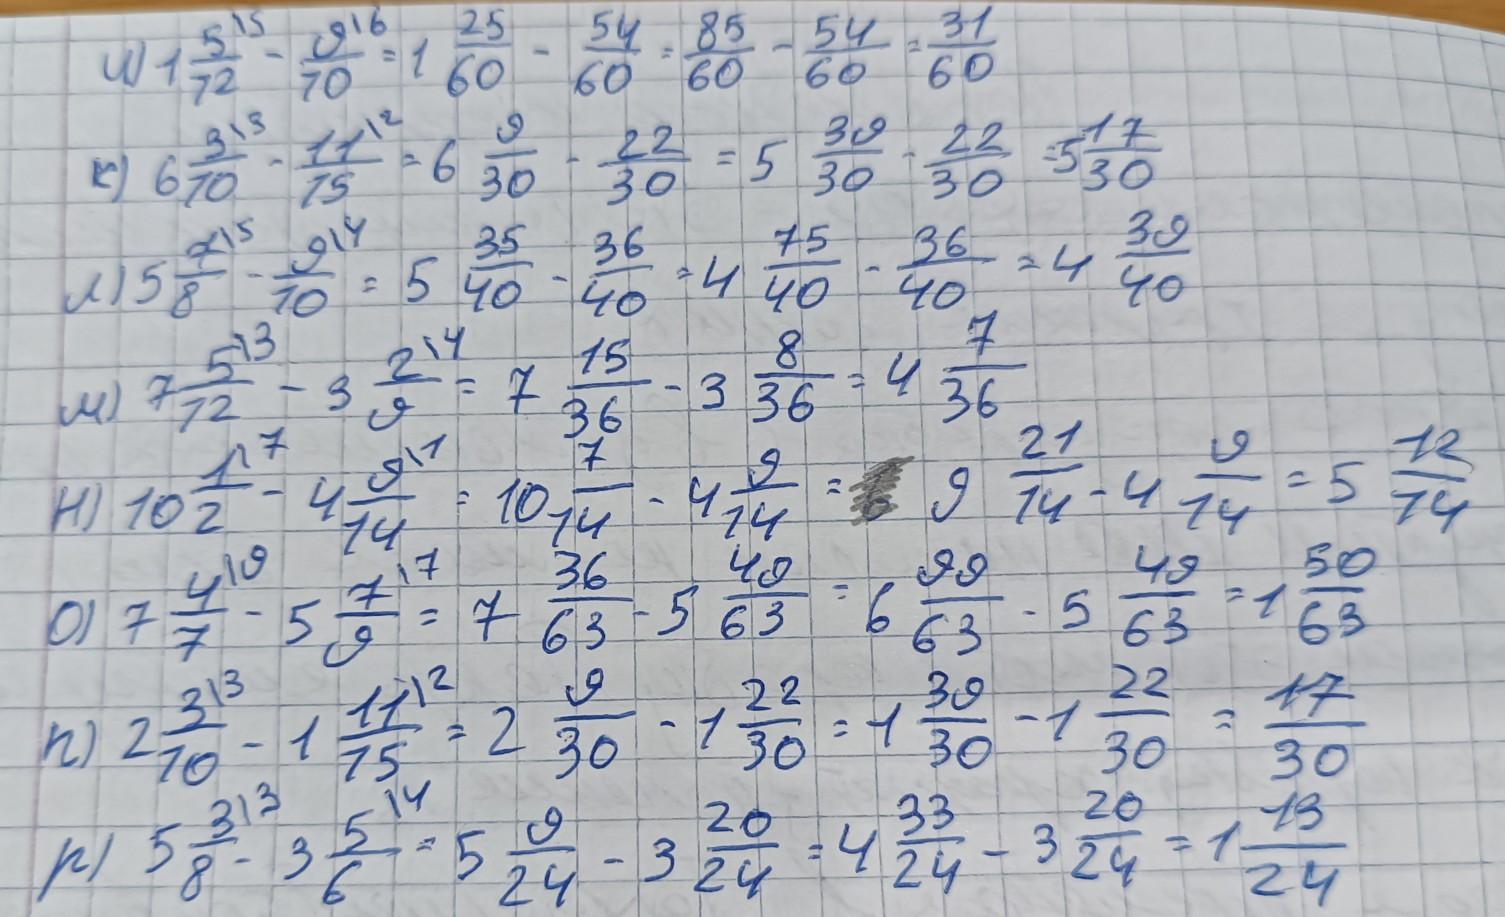 и) 1 5\5/12 - 9\6/10 = 1 25/60 - 54/60 = 85/60 - 54/60 = 31/60
к) 6 3\3/10 - 11\2/15 = 6 9/30 - 22/30 = 5 39/30 - 22/30 = 5 17/30
л) 5 7\5/8 - 9\4/10 = 5 35/40 - 36/40 = 4 75/40 - 36/40 = 4 39/40
м) 7 5\3/12 - 3 2\4/9 = 7 15/36 - 3 8/36 = 4 7/36
н) 10 1\7/2 - 4 9\1/14 = 10 7/14 - 4 9/14 = 9 21/14 - 4 9/14 = 5 12/14
о) 7 4\9/7 - 5 7\7/9 = 7 36/63 - 5 49/63 = 6 99/63 - 5 49/63 = 1 50/63
п) 2 3\3/10 - 1 11\2/15 = 2 9/30 - 1 22/30 = 1 39/30 - 1 22/30 = 17/30
р) 5 3\3/8 - 3 5\4/6 = 5 9/24 - 3 20/24 = 4 33/24 - 3 20/24 = 1 13/24